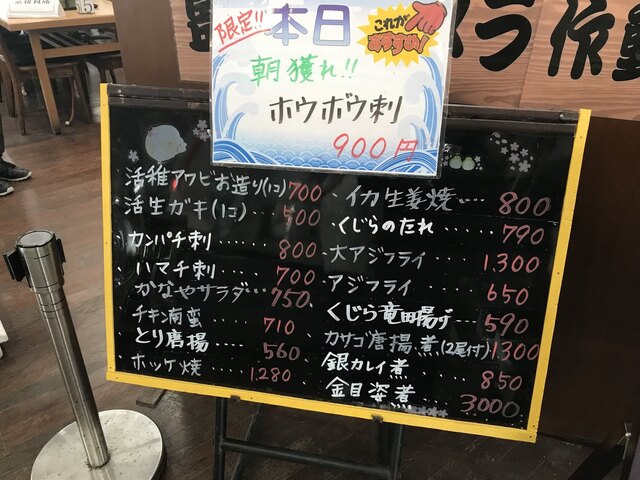 限定!!
本日
これが
おすすめ!
朝獲れ!!
ホウボウ刺
900円
活稚アワビお造り(1コ) 700
活生ガキ(1コ)... 500
カンパチ刺..... 800
ハマチ刺..... 700
かなやサラダ... 750
チキン南蛮.... 710
とり唐揚..... 560
ホッケ焼..... 1.280
イカ生姜焼... 800
くじらのたれ..... 790
大アジフライ.... 1.300
アジフライ..... 650
くじら竜田揚げ... 590
カサゴ唐揚.煮.(2尾付) 1300
銀カレイ煮..... 850
金目姿煮..... 3.000